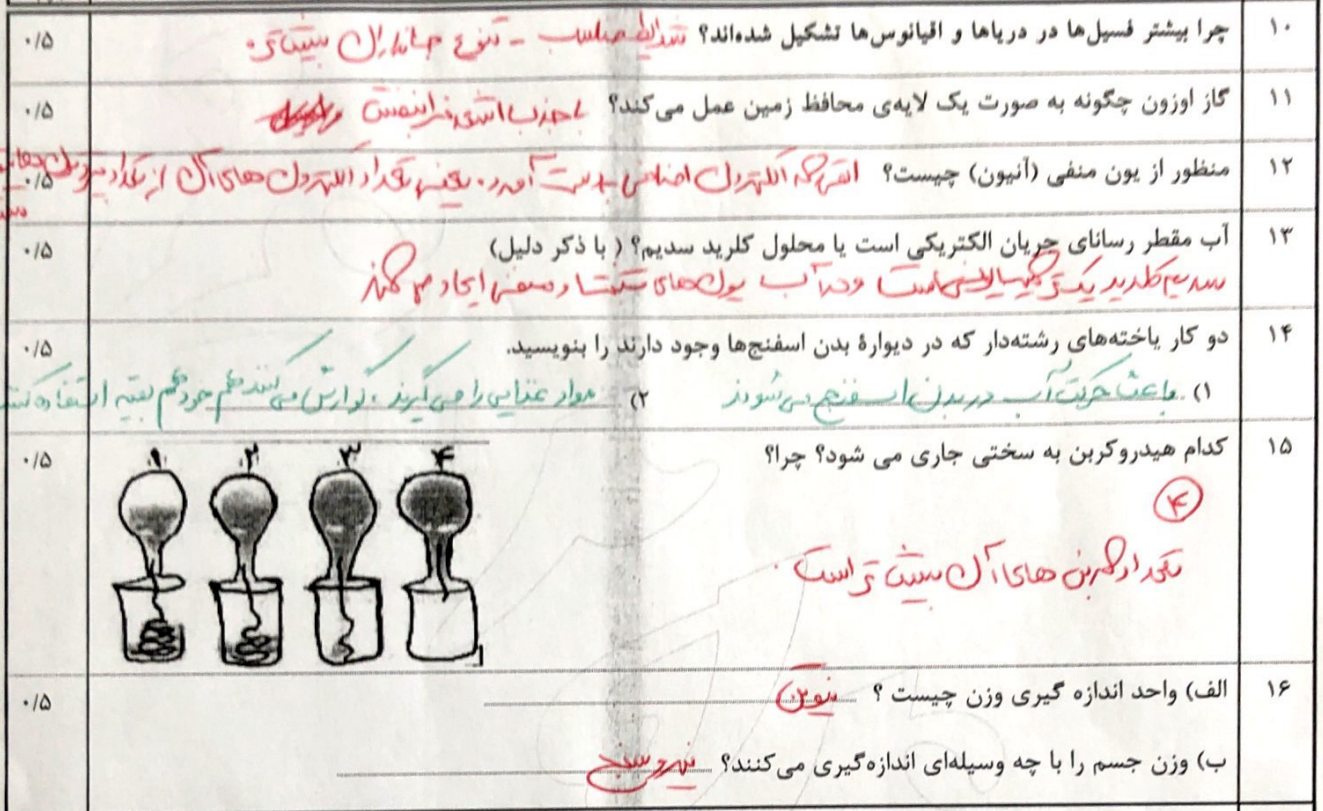 ۱۰ چرا بیشتر فسیل‌ها در دریاها و اقیانوس‌ها تشکیل شده‌اند؟ شرایط مناسب - تنوع جانداران بیشتر ۰/۵
۱۱ گاز اوزون چگونه به صورت یک لایه‌ی محافظ زمین عمل می‌کند؟ با جذب اشعه فرابنفش ۰/۵
۱۲ منظور از یون منفی (آنیون) چیست؟ اتمی که الکترون اضافی بدست آورد. یعنی تعداد الکترون های آن از تعداد پروتون ۰/۵
۱۳ آب مقطر رسانای جریان الکتریکی است یا محلول کلرید سدیم؟ ( با ذکر دلیل) ۰/۵
سدیم کلرید یک ترکیب یونی است و در آب یون های مثبت و منفی ایجاد می کند
۱۴ دو کار یاخته‌های رشته‌دار که در دیوارهٔ بدن اسفنج‌ها وجود دارند را بنویسید. ۰/۵
۱) باعث حرکت آب در بدن اسفنج می شوند ۲) مواد غذایی را می گیرند، گوارش می کنند هم خود هم بقیه استفاده کنند
۱۵ کدام هیدروکربن به سختی جاری می شود؟ چرا؟ ۰/۵
۱ ۲ ۳ ۴
۴
تعداد کربن های آن بیشتر است.
۱۶ الف) واحد اندازه گیری وزن چیست ؟ نیوتن ۰/۵
ب) وزن جسم را با چه وسیله‌ای اندازه‌گیری می‌کنند؟ نیرو سنج